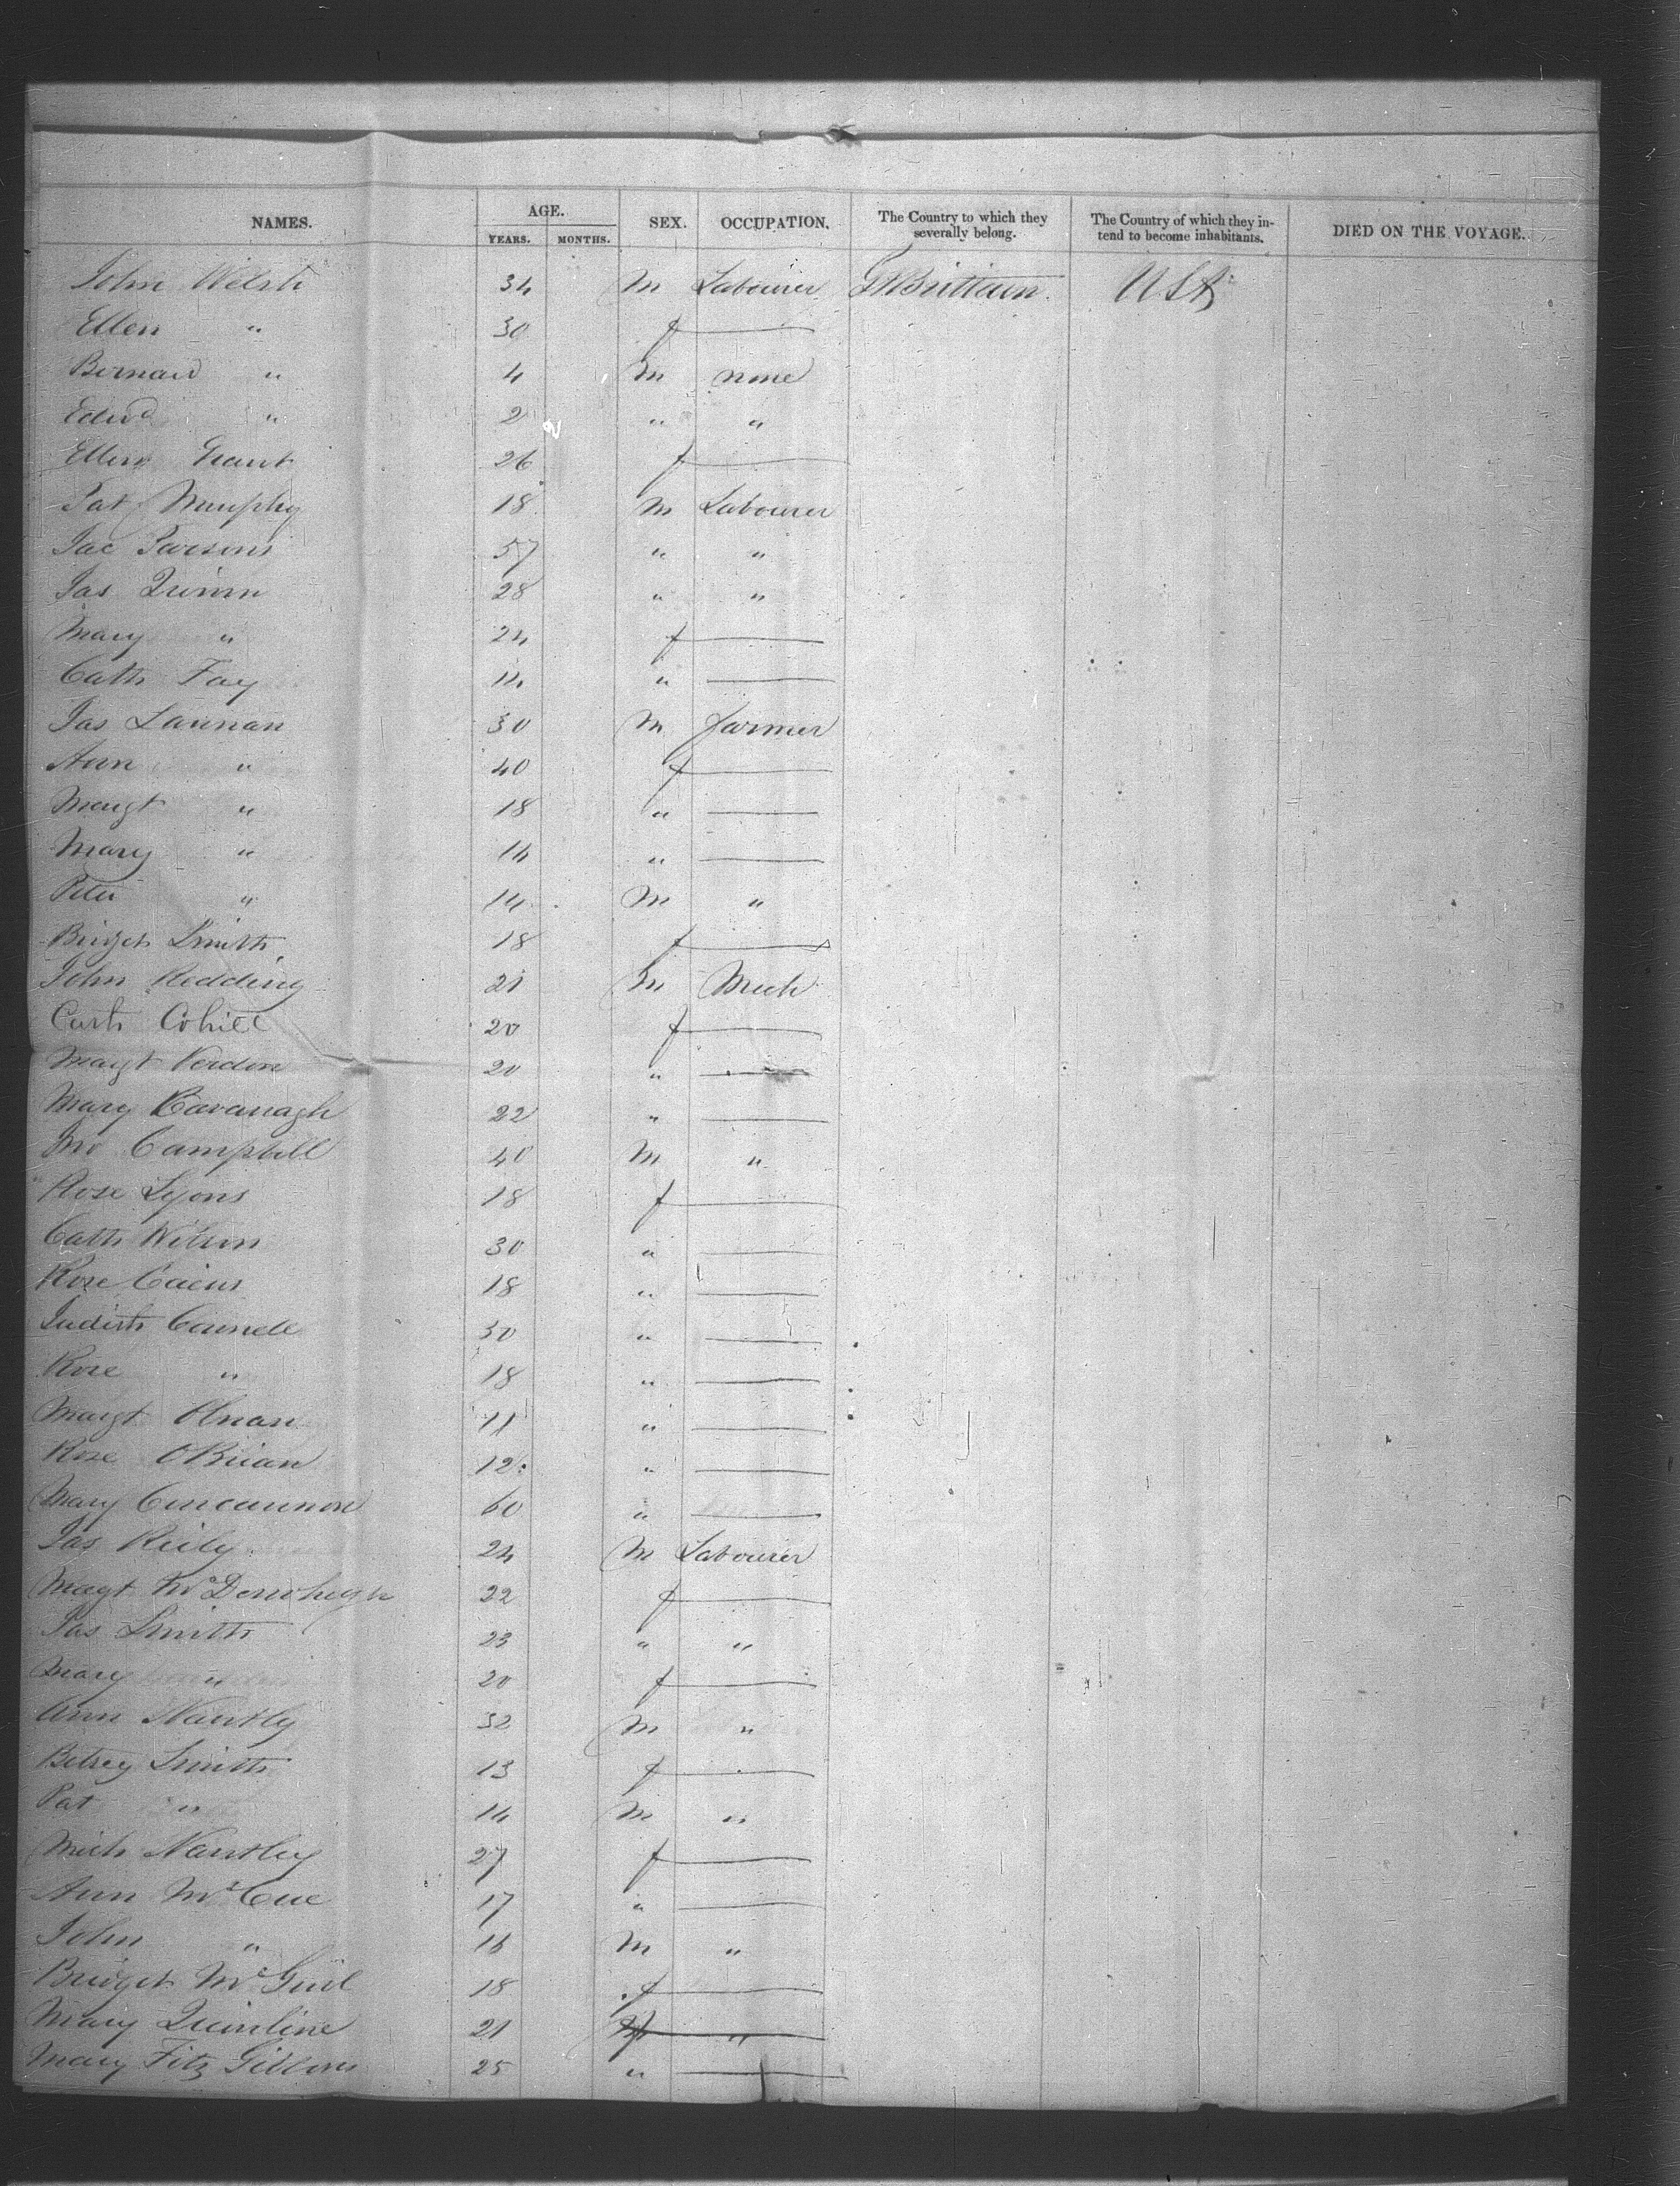 NAMES. AGE. YEARS. MONTHS. SEX. OCCUPATION. The Country to which they severally belong. The Country of which they intend to become inhabitants. DIED ON THE VOYAGE.
John Welsh 34 M Labourer Gt Brittain USA
Ellen " 30 f
Bernard " 4 M none
Edwd " 2 " "
Ellen Grant 26 f
Pat Murphy 18 M Labourer
Jac Parsons 57 " "
Jas Quinn 28 " "
Mary " 24 f
Cath Fay 14 "
Jas Lannan 30 M farmer
Ann " 40 f
Margt " 18 "
Mary " 16 "
Peter " 14 M "
Bridget Smith 18 f
John Redding 21 M Mech
Cath Cohill 20 f
Margt Verdon 20 "
Mary Cavanagh 22 "
Jno Campbell 40 M "
Rose Lyons 18 f
Cath Wilson 30 "
Rose Cairns 18 "
Judith Connell 30 "
Rose " 18 "
Margt 11 "
Rose OBrian 12 "
Mary Concannon 60 "
Jas Reily 24 M Labourer
Margt McDonohugh 22 f
Jas Smith 23 " "
Mary " 20 f
Ann Nantly 32 M "
Betsey Smith 13 f
Pat " 14 M "
Mich Nantley 27 f
Ann McCue 17 "
John " 16 M "
Bridget 18 f
Mary Quinline 21 "
Mary Fitz Gibbons 25 "